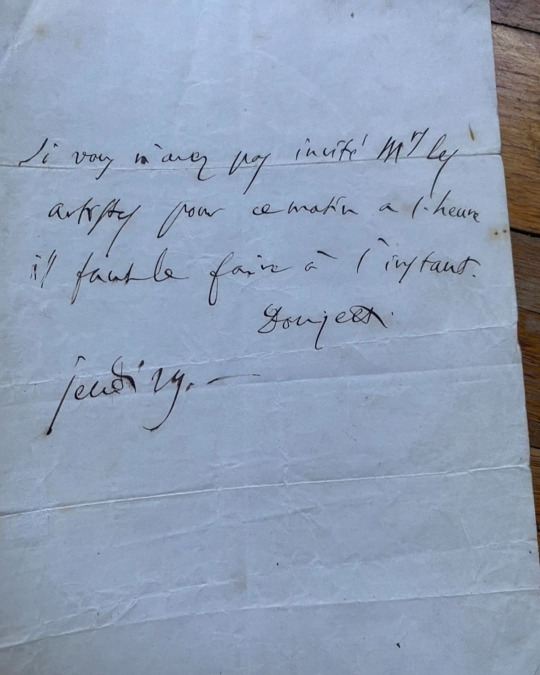 Si vous n'avez pas invité Mrs les
artistes pour ce matin a 1 heure
il faut le faire à l'instant.
Donizetti
jeudi 29. —